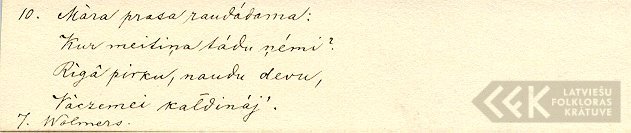 10. Māra prasa raudādama:
Kur meitiņa tādu ņēmi?
Rīgā pirku, naudu devu,
Vāczemei kaldināj'.
7. Wolmers.
LATVIEŠU
FOLKLORAS
KRĀTUVE